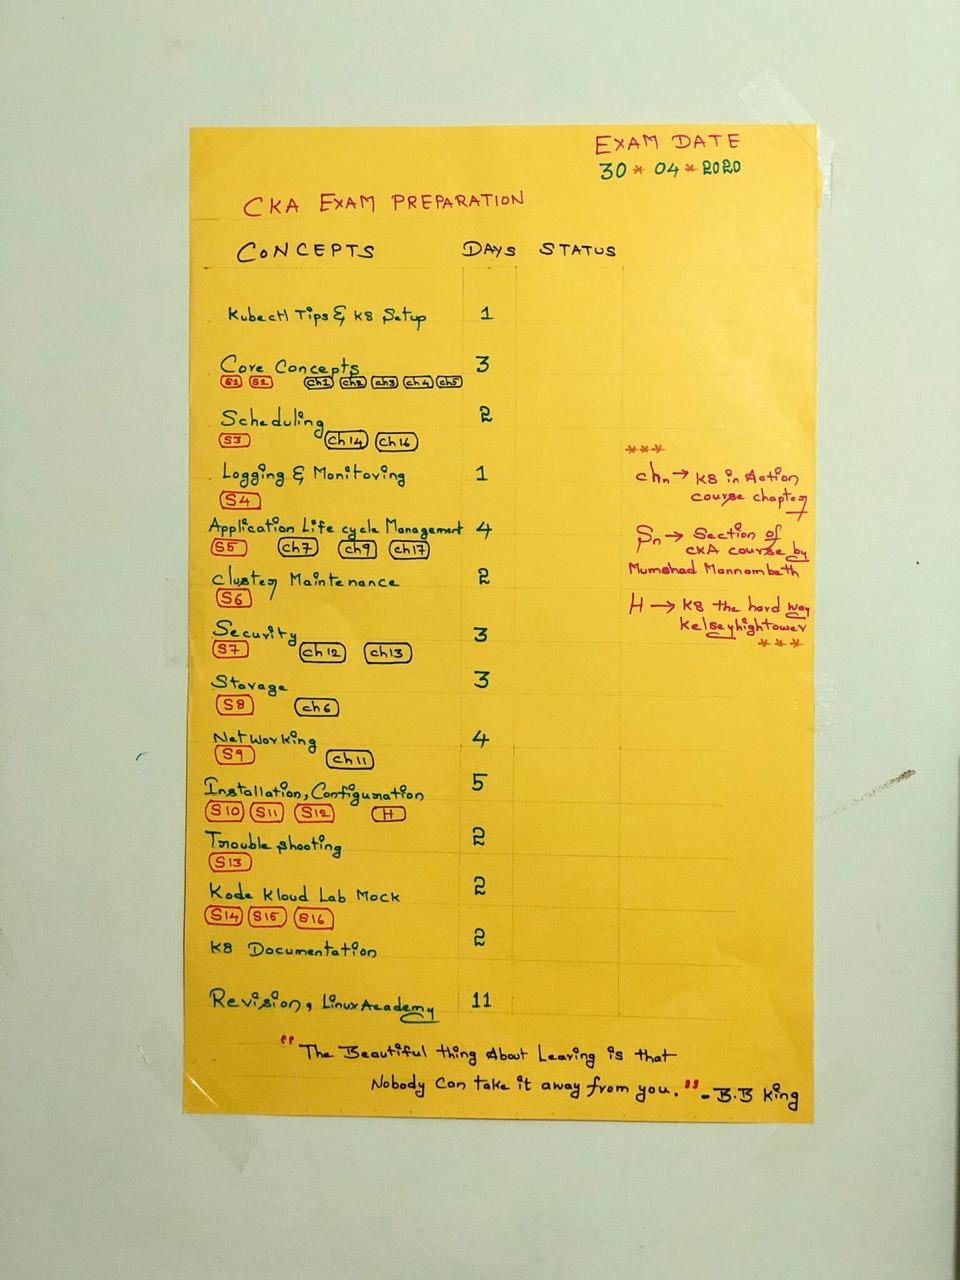 EXAM DATE
30 * 04 * 2020
CKA EXAM PREPARATION
CONCEPTS DAYS STATUS
Kubectl Tips & K8 Setup 1
Core Concepts 3
S1 S2 ch1 ch2 ch3 ch4 ch5
Scheduling 2
S3 ch14 ch16
Logging & Monitoring 1
S4
Application Life cycle Management 4
S5 ch7 ch9 ch17
Cluster Maintenance 2
S6
Security 3
S7 ch12 ch13
Storage 3
S8 ch6
Networking 4
S9 ch11
Installation, Configuration 5
S10 S11 S12 H
Trouble shooting 2
S13
Kode Kloud Lab Mock 2
S14 S15 S16
K8 Documentation 2
Revision, Linux Academy 11
***
chn → K8 in Action
course chapter
Sn → Section of
CKA course by
Mumshad Mannambeth
H → K8 the hard way
Kelseyhightower
***
"The Beautiful thing About Learing is that
Nobody Can take it away from you." - B.B King